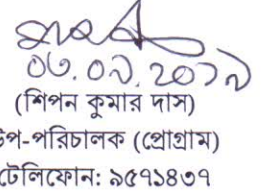 ০৬.০১.২০১১
(শিপন কুমার দাস)
উপ-পরিচালক (প্রোগ্রাম)
টেলিফোন: ৯৫৭১৪৩৭